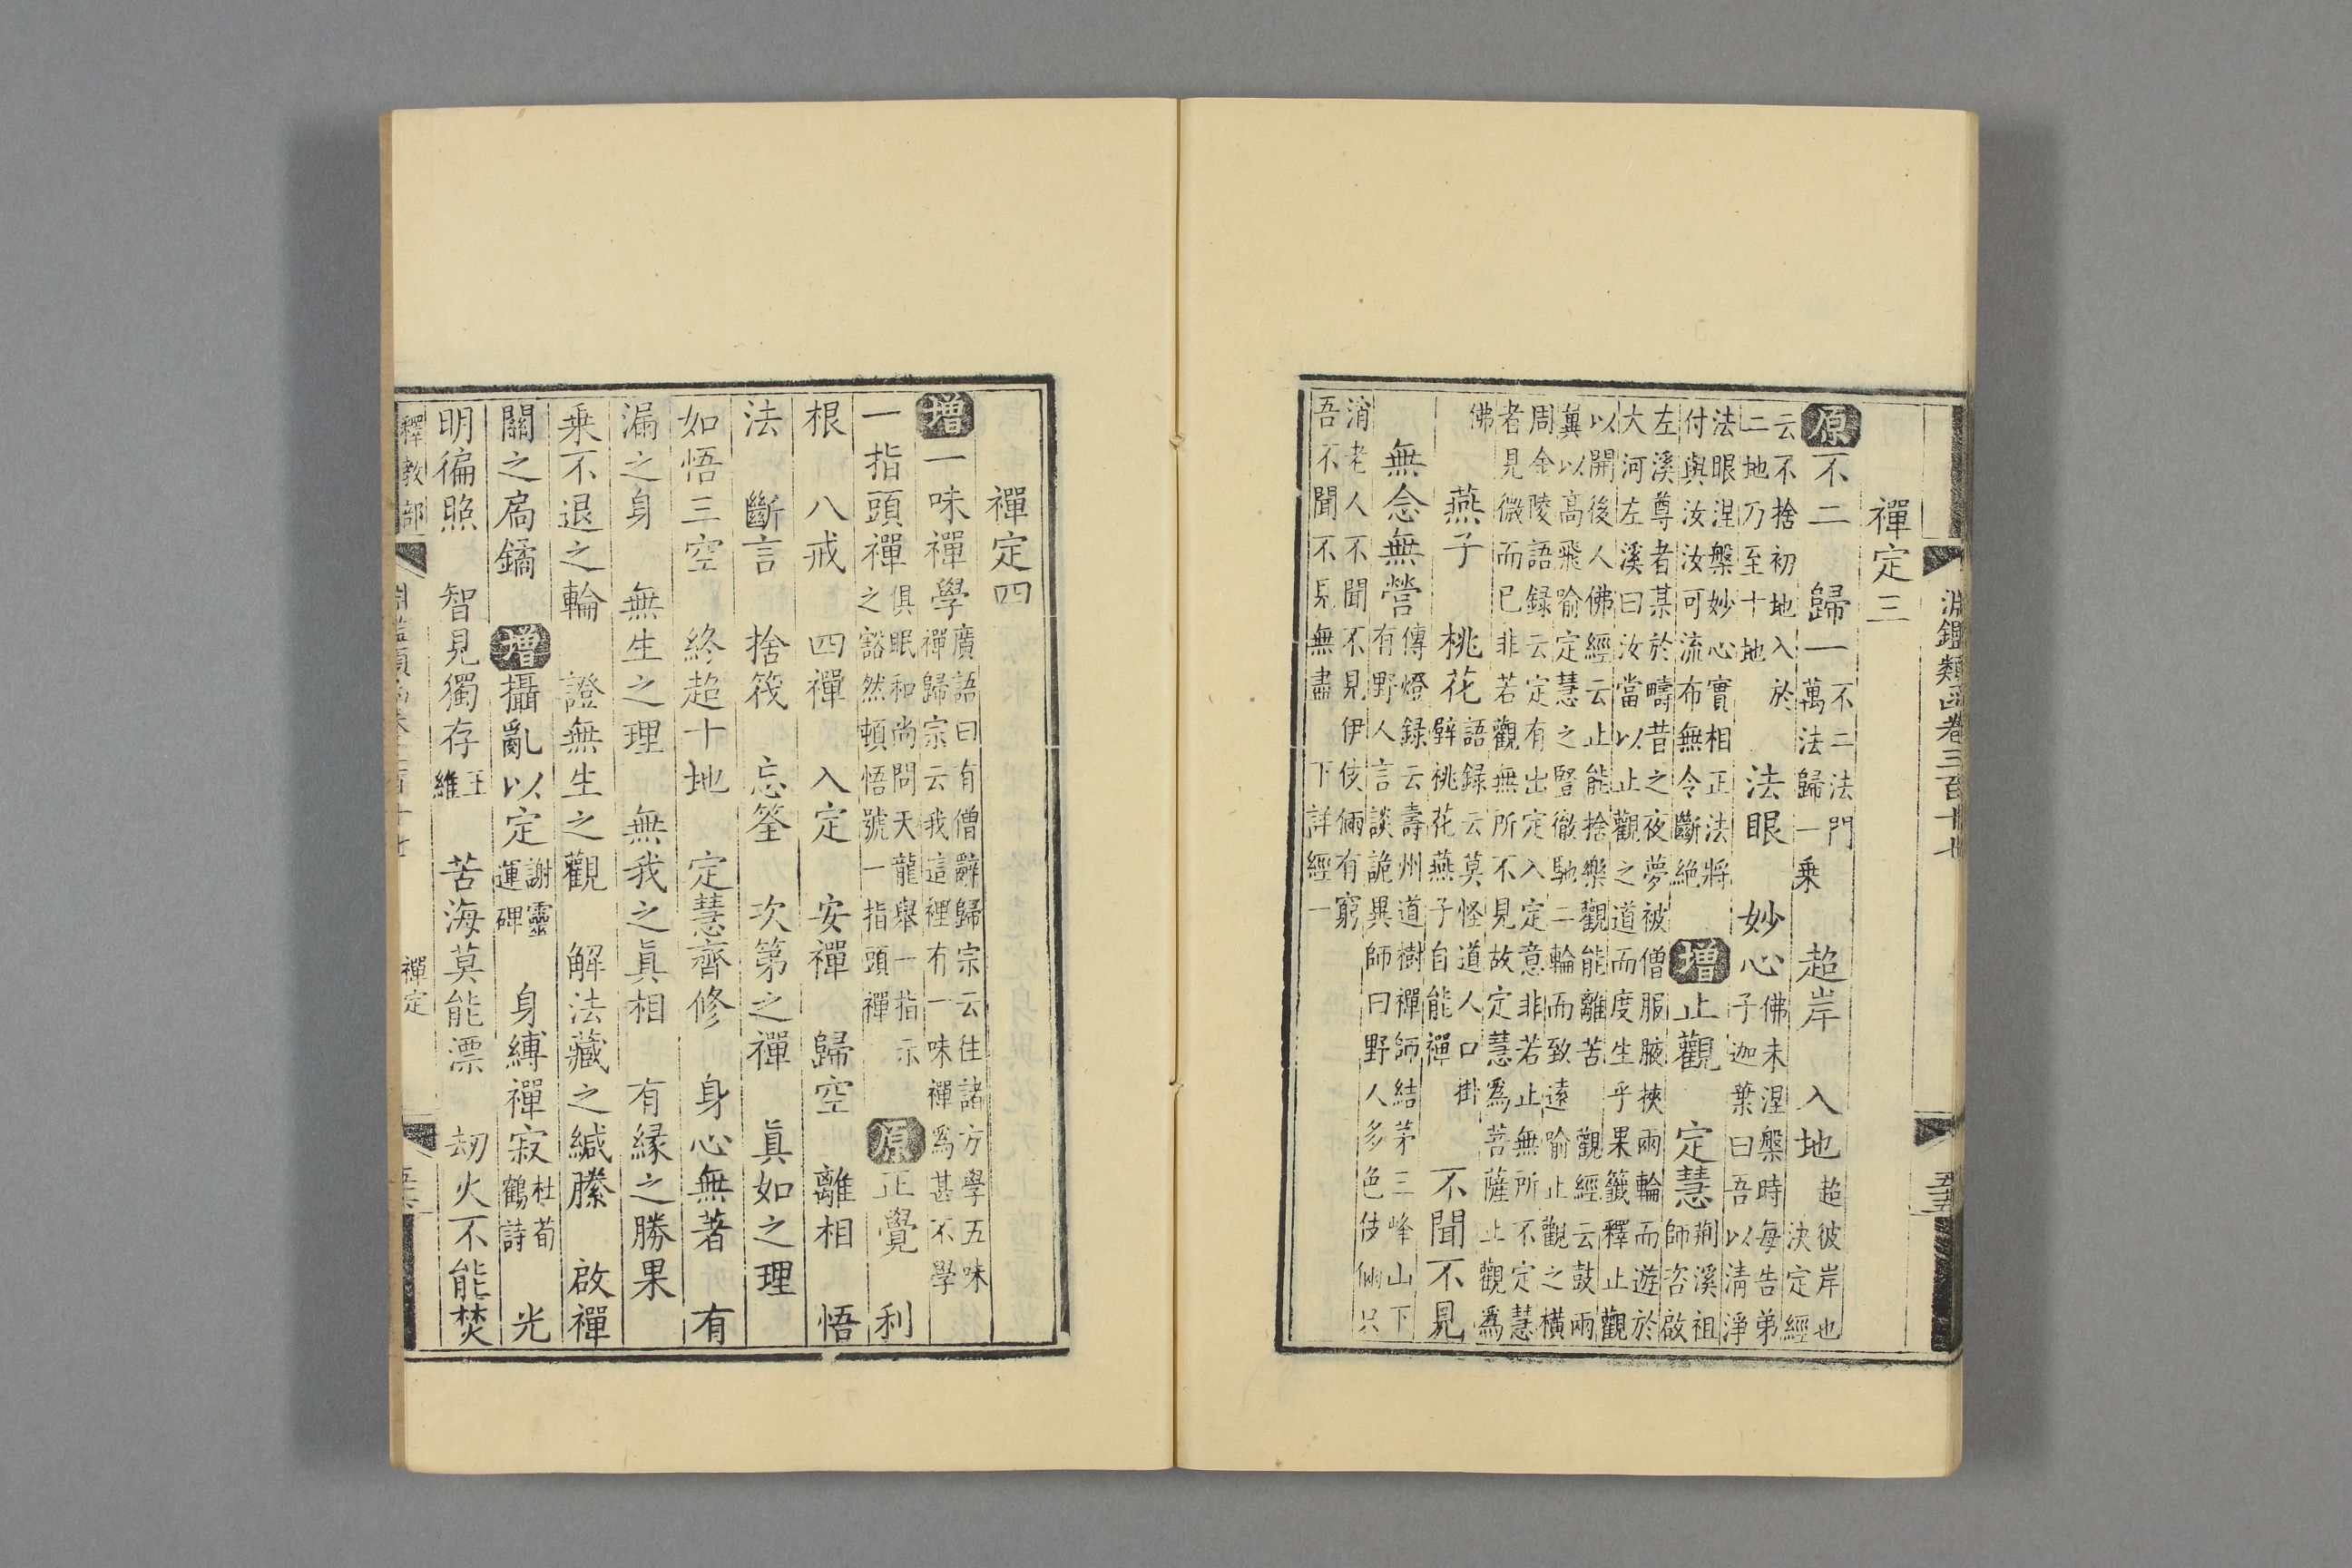 淵鑑類函卷三百十七 五十五
禪定三
原不二 歸一 不二法門
萬法歸一乘 超岸 入地 超彼岸也
決定經
云不捨初地入於
二地乃至十地 法眼 妙心 佛未涅槃時每告弟
子迦葉曰吾以清淨
法眼涅槃妙心實相正法將
付與汝汝可流布無令斷絶 增止觀 定慧 荆溪祖
師咨啟
左溪尊者某於疇昔之夜夢被僧服腋挾兩輪而遊於
大河左溪曰汝當以止觀之道而度生乎果籤釋止觀
以開後人佛經云止能捨樂觀能離苦 觀經云鼓兩
冀以高飛喻定慧之豎徹馳二輪而致遠喻止觀之橫
周金陵語録云定有出定入定意非若止無所不定慧
者見微而已非若觀無所不見故定慧爲菩薩止觀爲
佛 燕子 桃花 語録云莫怪道人口掛
壁桃花燕子自能禪 不聞不見
無念無營 傳燈録云壽州道樹禪師結茅三峰山下
有野人言談詭異師曰野人多色伎倆只
消老人不聞不見伊伎倆有窮
吾不聞不見無盡 下詳經一
禪定四
增一味禪學 廣語曰有僧辭歸宗云往諸方學五味
禪歸宗云我這裡有一味禪爲甚不學
一指頭禪 俱眠和尚問天龍舉一指示
之豁然頓悟號一指頭禪 原正覺 利
根 八戒 四禪 入定 安禪 歸空 離相 悟
法 斷言 捨筏 忘筌 次第之禪 眞如之理
如悟三空 終超十地 定慧齊修 身心無著 有
漏之身 無生之理 無我之眞相 有緣之勝果
乘不退之輪 證無生之觀 解法藏之緘縢 啟禪
關之扃鐍 增攝亂以定 謝靈
運碑 身縛禪寂 杜荀
鶴詩 光
明徧照 智見獨存 王
維 苦海莫能漂 劫火不能焚
釋教部 禪定